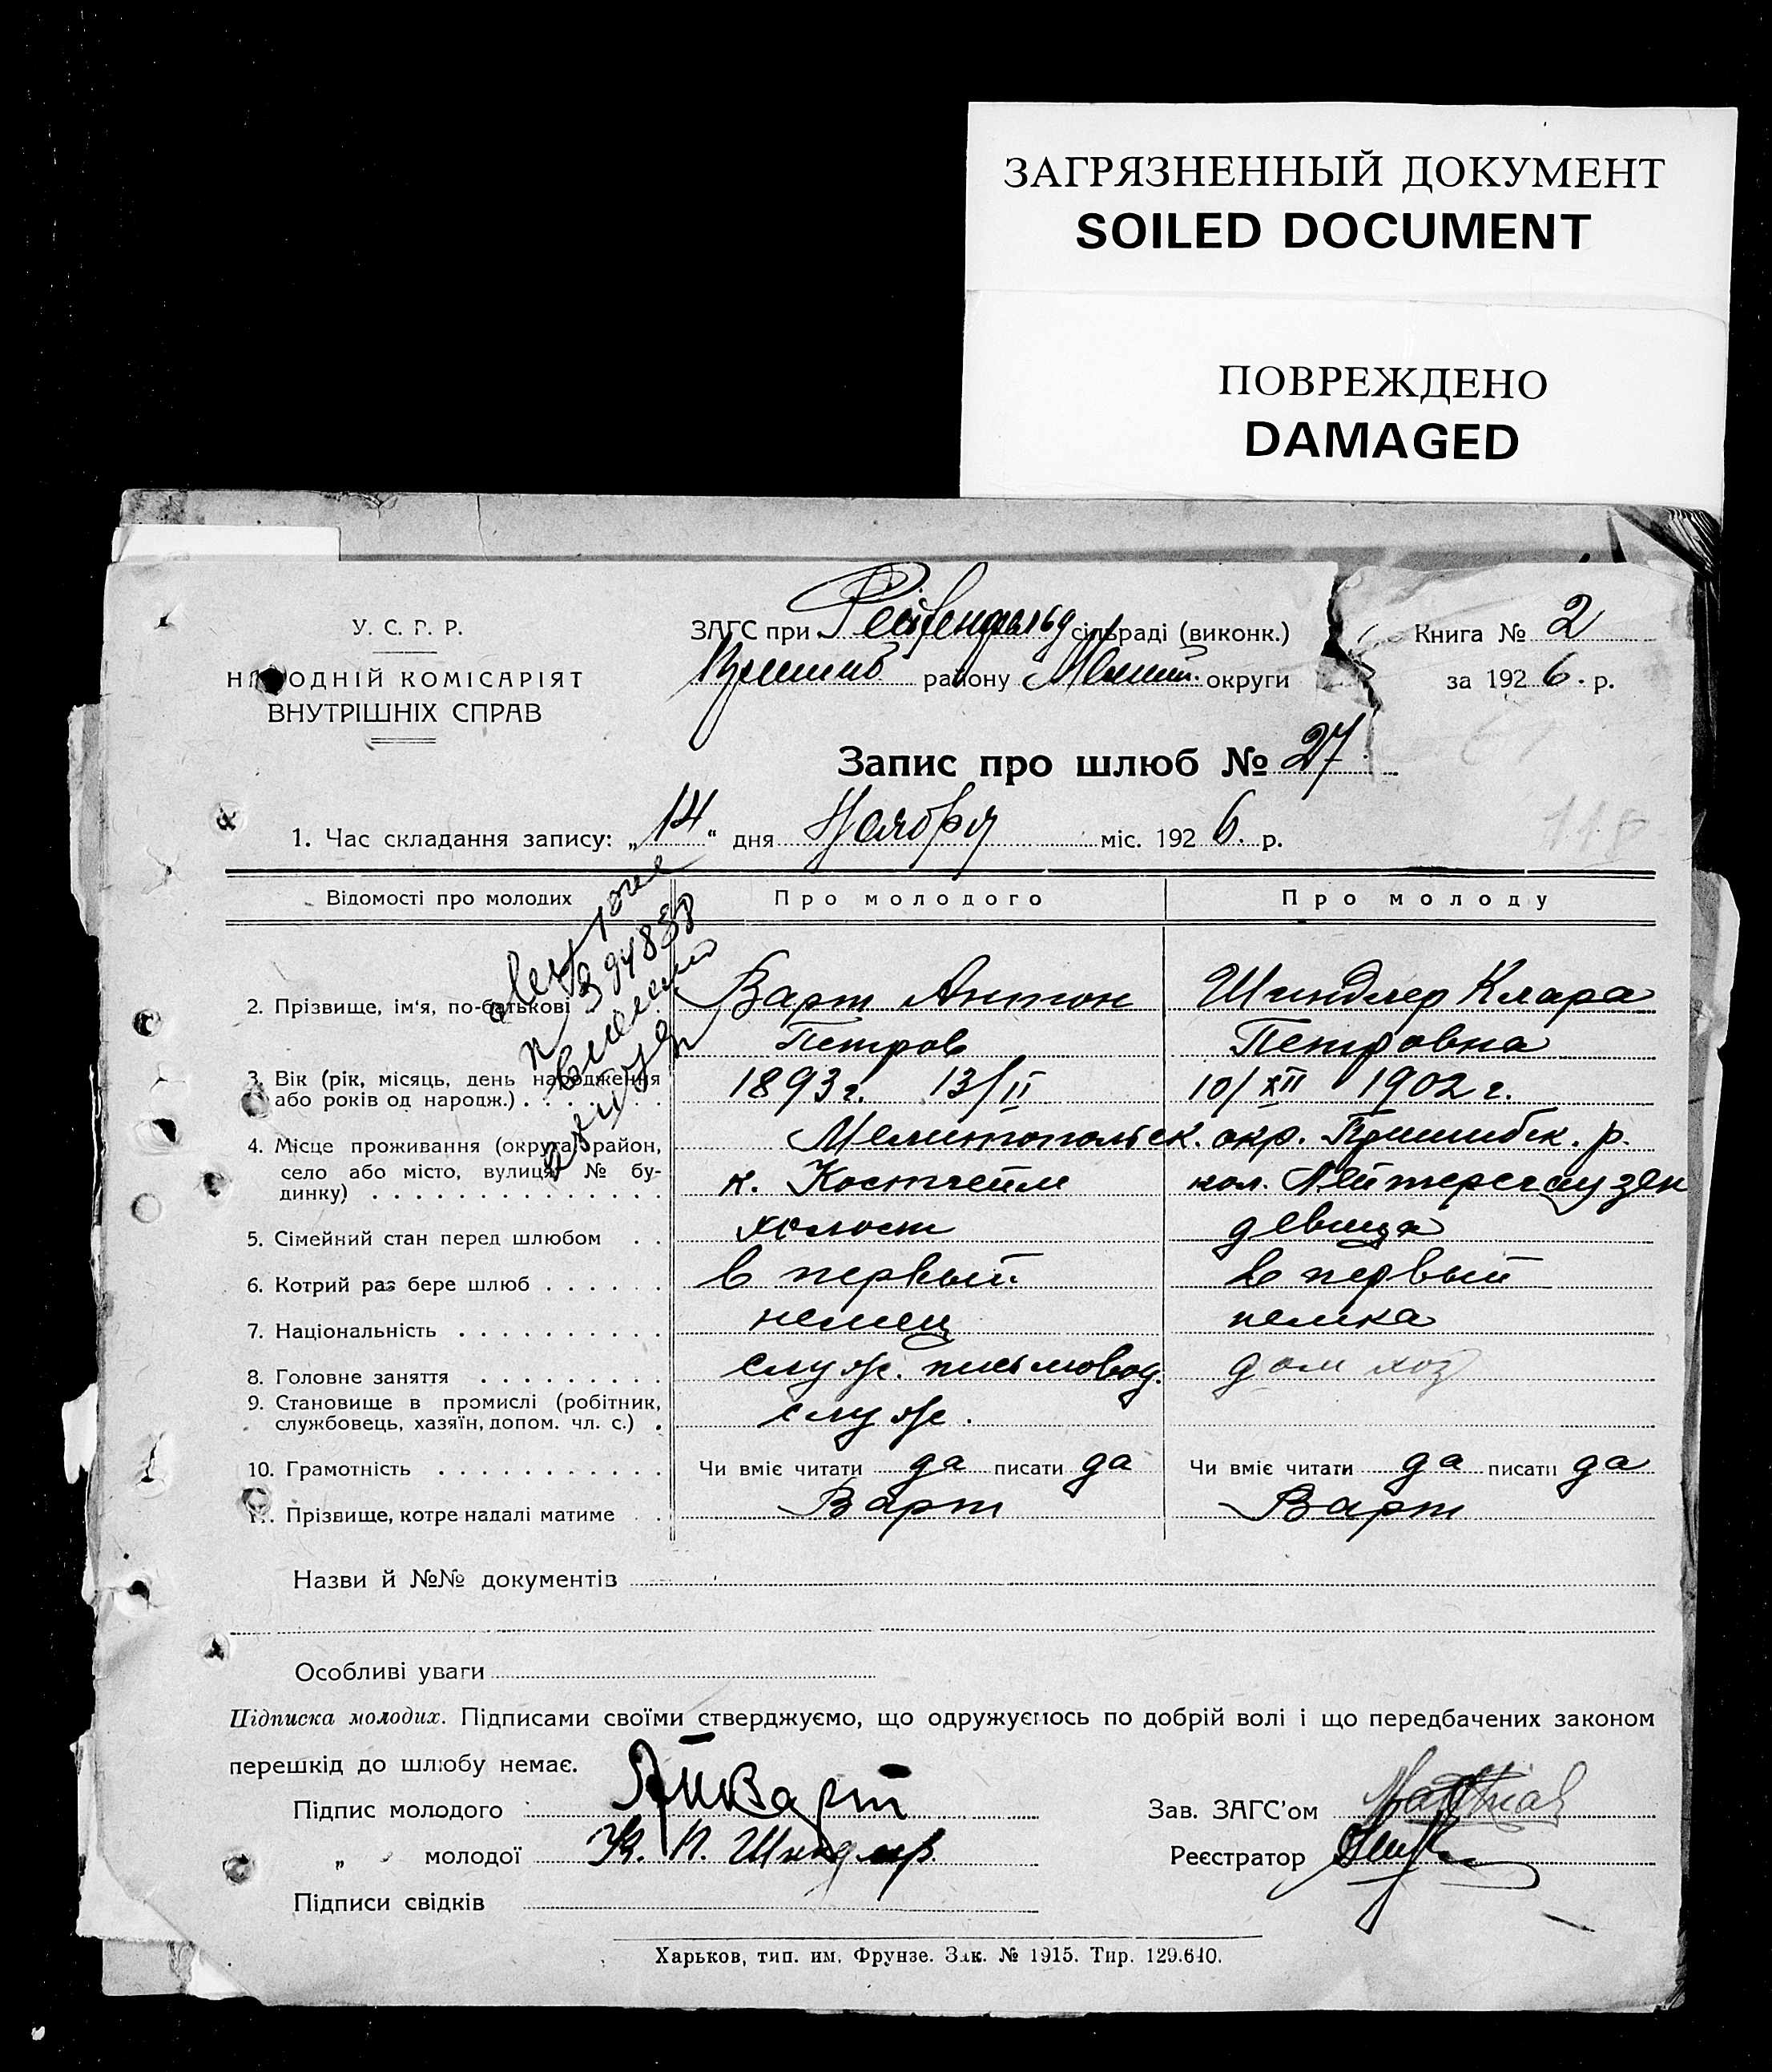 ЗАГРЯЗНЕННЫЙ ДОКУМЕНТ
SOILED DOCUMENT
ПОВРЕЖДЕНО
DAMAGED
У. С. Г. Р.
НАРОДНІЙ КОМІСАРІЯТ
ВНУТРІШНІХ СПРАВ
ЗАГС при Рейхенфельд сільраді (виконк.)
Пришиб району Мелит. округи
Книга № 2
за 1926. р.
Запис про шлюб № 27
118
1. Час складання запису: „14“ дня Ноября міс. 1926. р.
Відомості про молодих Про молодого Про молоду
2. Прізвище, ім'я, по-батькові Варт Антон Шиндлер Клара
Петров Петровна
3. Вік (рік, місяць, день народження
або років од народж.) 1893 г. 13/II 10/XII 1902 г.
4. Місце проживання (округа, район, Мелитопольск. окр. Пришибск. р.
село або місто, вулиця, № бу-
динку) к. Костгейм кол. Лейтерсгаузен
5. Сімейний стан перед шлюбом холост девица
6. Котрий раз бере шлюб в первый в первый
7. Національність немец немка
8. Головне заняття служ. письмовод. дом хоз
9. Становище в промислі (робітник,
службовець, хазяїн, допом. чл. с.) служ.
10. Грамотність Чи вміє читати да писати да Чи вміє читати да писати да
11. Прізвище, котре надалі матиме Варт Варт
Назви й №№ документів
Особливі уваги
Підписка молодих. Підписами своїми стверджуємо, що одружуємось по добрій волі і що передбачених законом
перешкід до шлюбу немає.
Підпис молодого А.П.Варт Зав. ЗАГС'ом
„ молодої К. П. Шиндлер Реєстратор
Підписи свідків
Харьков, тип. им. Фрунзе. Зак. № 1915. Тир. 129.640.